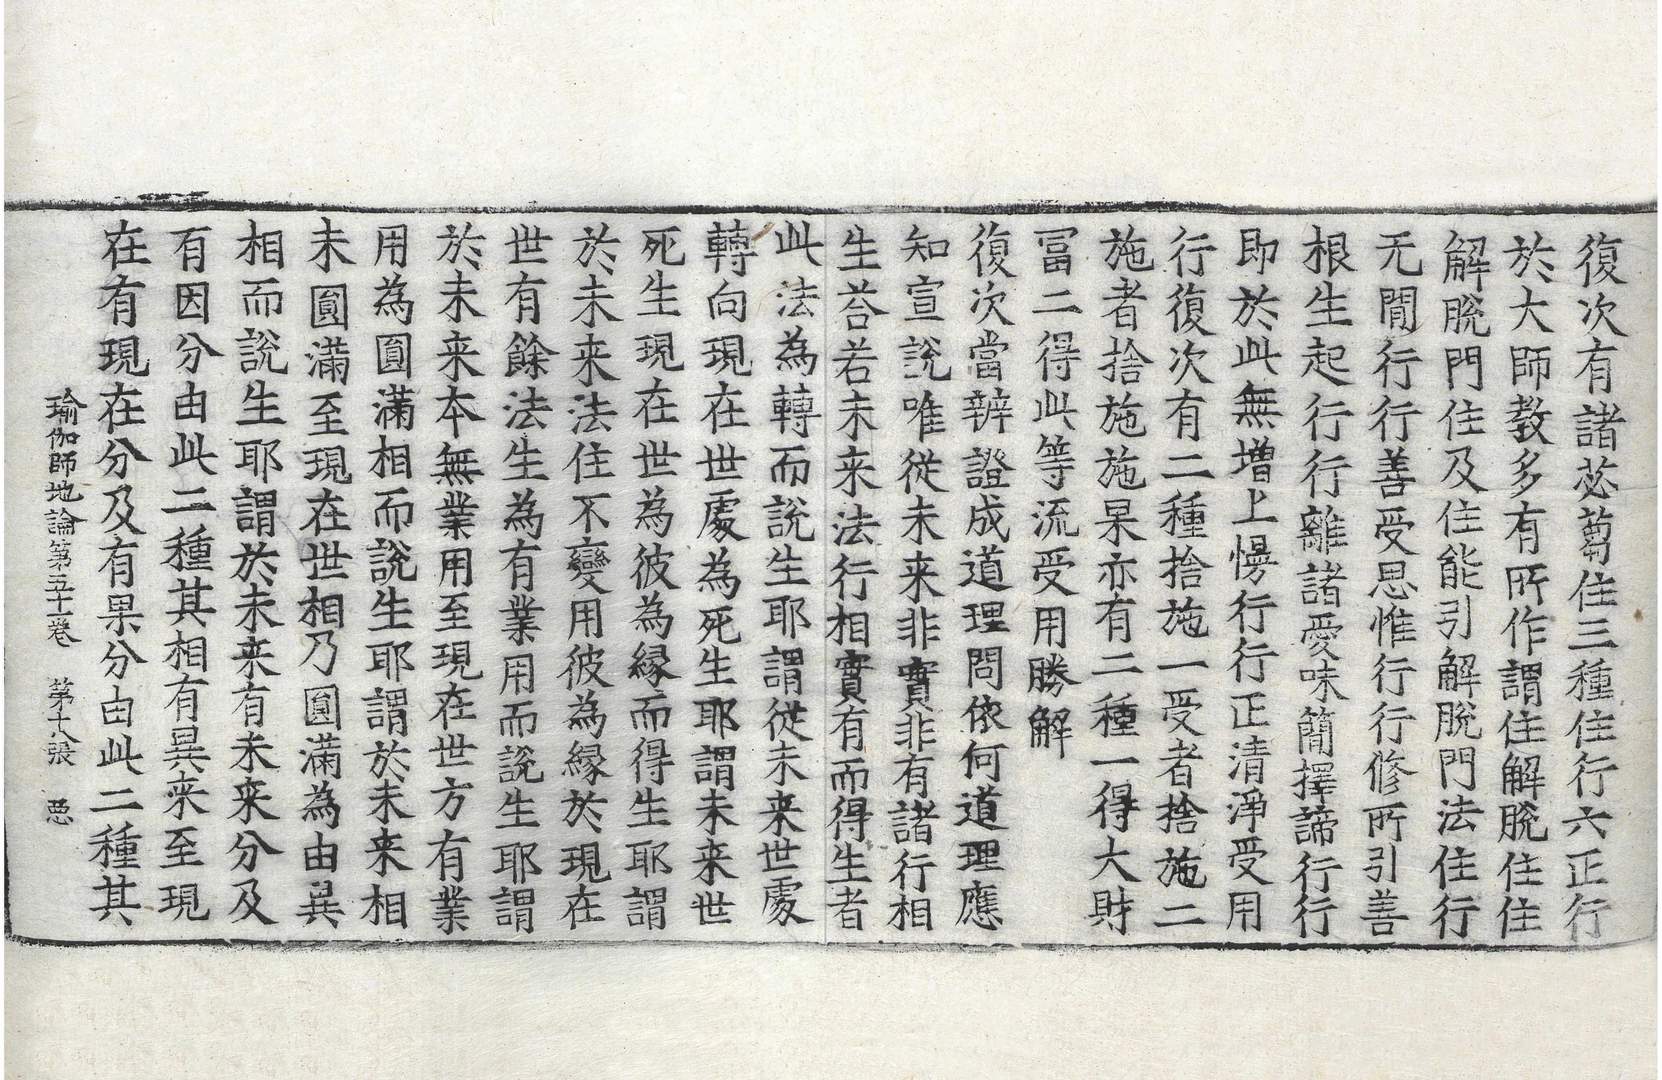 復次有諸苾蒭住三種住行六正行
於大師教多有所作謂住解脫住住
解脫門住及住能引解脫門法住行
无閒行行善受思惟行行修所引善
根生起行行離諸愛味簡擇諦行行
即於此無增上慢行行正清淨受用
行復次有二種捨施一受者捨施二
施者捨施施果亦有二種一得大財
冨二得此等流受用勝解
復次當辨證成道理問依何道理應
知宣說唯從未来非實非有諸行相
生荅若未来法行相實有而得生者
此法為轉而說生耶謂從未来世處
轉向現在世處為死生耶謂未来世
死生現在世為彼為縁而得生耶謂
於未来法住不變用彼為縁於現在
世有餘法生為有業用而說生耶謂
於未来本無業用至現在世方有業
用為圓滿相而說生耶謂於未来相
未圓滿至現在世相乃圓滿為由異
相而說生耶謂於未来有未来分及
有因分由此二種其相有異来至現
在有現在分及有果分由此二種其
瑜伽師地論第五十二卷　第十八張　惡